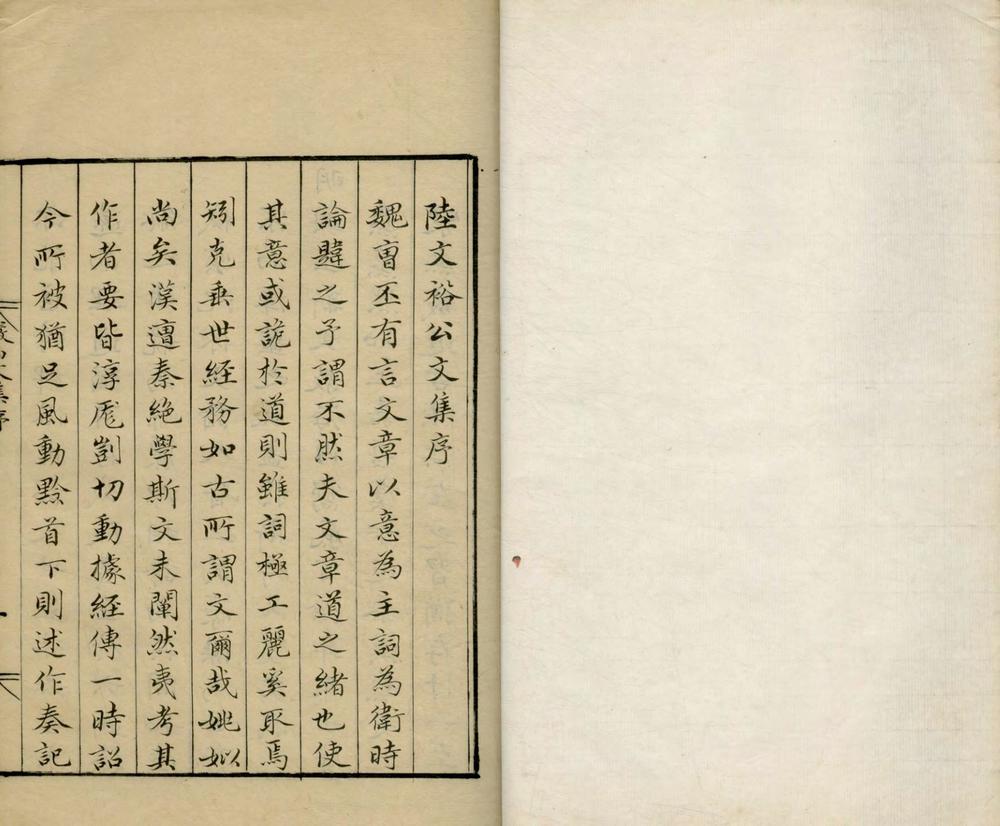 陸文裕公文集序
魏曺丕有言文章以意為主詞為衛時
論韙之予謂不然夫文章道之緒也使
其意或詭於道則雖詞極工麗奚取焉
矧克垂世經務如古所謂文爾哉姚姒
尚矣漢邅秦絕學斯文未闡然夷考其
作者要皆淳厖剴切動據經傳一時詔
令所被猶足風動黔首下則述作奏記
集序
一